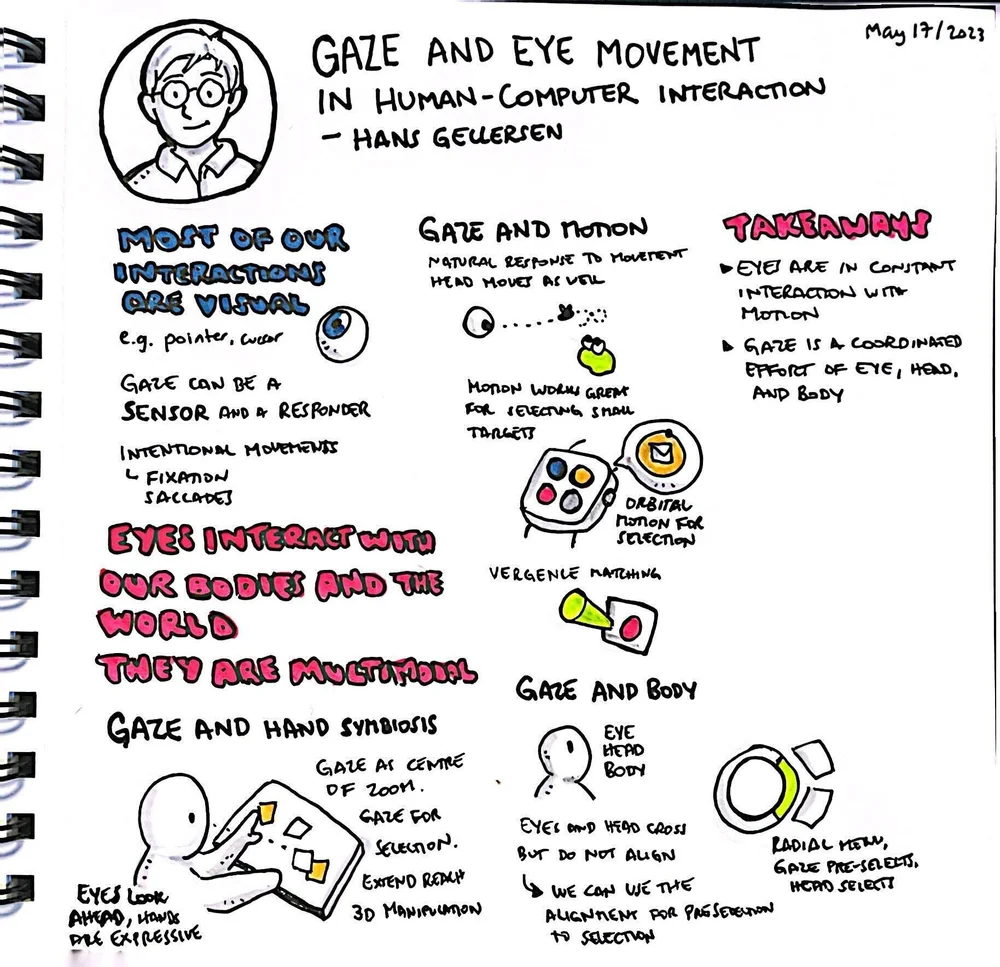 May 17/2023
GAZE AND EYE MOVEMENT
IN HUMAN-COMPUTER INTERACTION
- HANS GELLERSEN
MOST OF OUR
INTERACTIONS
ARE VISUAL
e.g. pointer, cursor
GAZE CAN BE A
SENSOR AND A RESPONDER
INTENTIONAL MOVEMENTS
↳ FIXATION
SACCADES
EYES INTERACT WITH
OUR BODIES AND THE
WORLD
THEY ARE MULTIMODAL
GAZE AND HAND SYMBIOSIS
GAZE AS CENTRE
OF ZOOM.
GAZE FOR
SELECTION.
EXTEND REACH
3D MANIPULATION
EYES LOOK
AHEAD, HANDS
ARE EXPRESSIVE
GAZE AND MOTION
NATURAL RESPONSE TO MOVEMENT
HEAD MOVES AS WELL
MOTION WORKS GREAT
FOR SELECTING SMALL
TARGETS
ORBITAL
MOTION FOR
SELECTION
VERGENCE MATCHING
GAZE AND BODY
EYE
HEAD
BODY
EYES AND HEAD CROSS
BUT DO NOT ALIGN
↳ WE CAN WE THE
ALIGNMENT FOR PRESELECTION
TO SELECTION
RADIAL MENU,
GAZE PRE-SELECTS,
HEAD SELECTS
TAKEAWAYS
▶ EYES ARE IN CONSTANT
INTERACTION WITH
MOTION
▶ GAZE IS A COORDINATED
EFFORT OF EYE, HEAD,
AND BODY